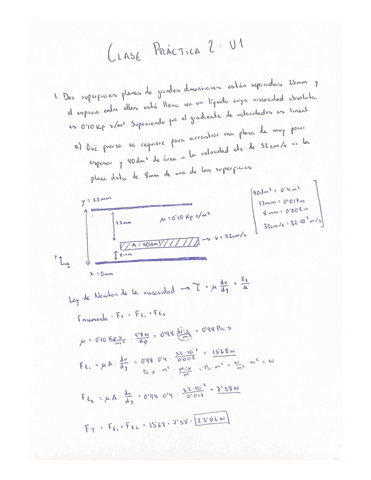 CLASE PRÁCTICA 2: U1
1. Dos superficies planas de grandes dimensiones están separadas 25mm y
el espacio entre ellas está lleno con un líquido cuya viscosidad absoluta
es 0'10 Kp s/m². Suponiendo que el gradiente de velocidades es lineal
a) Qué fuerza se requiere para arrastrar una placa de muy poco
espesor y 40dm² de área a la velocidad cte de 32cm/s si la
placa dista de 8mm de una de las superficies
y = 25mm
40dm² = 0'4m²
17mm = 0'017m
8mm = 0'008m
32cm/s = 32·10⁻² m/s
17mm
μ = 0'10 Kp s/m²
A = 40dm²
v = 32cm/s
8mm
x = 0mm
Ley de Newton de la viscosidad → τ = μ dv/dy = Ft/A
F_T = F_t₁ + F_t₂
μ = 0'10 Kp s/m² · 9'8N/Kp = 0'98 N·s/m² = 0'98 Pa·s
F_t₁ = μ A · dv/dy = 0'98 · 0'4 · 32·10⁻²/0'008 = 15'68 N
Pa·s · m² · m/s/m = Pa·m² = N/m² · m² = N
F_t₂ = μ A · dv/dy = 0'98 · 0'4 · 32·10⁻²/0'017 = 7'38 N
F_T = F_t₁ + F_t₂ = 15'68 + 7'38 = 23'06 N